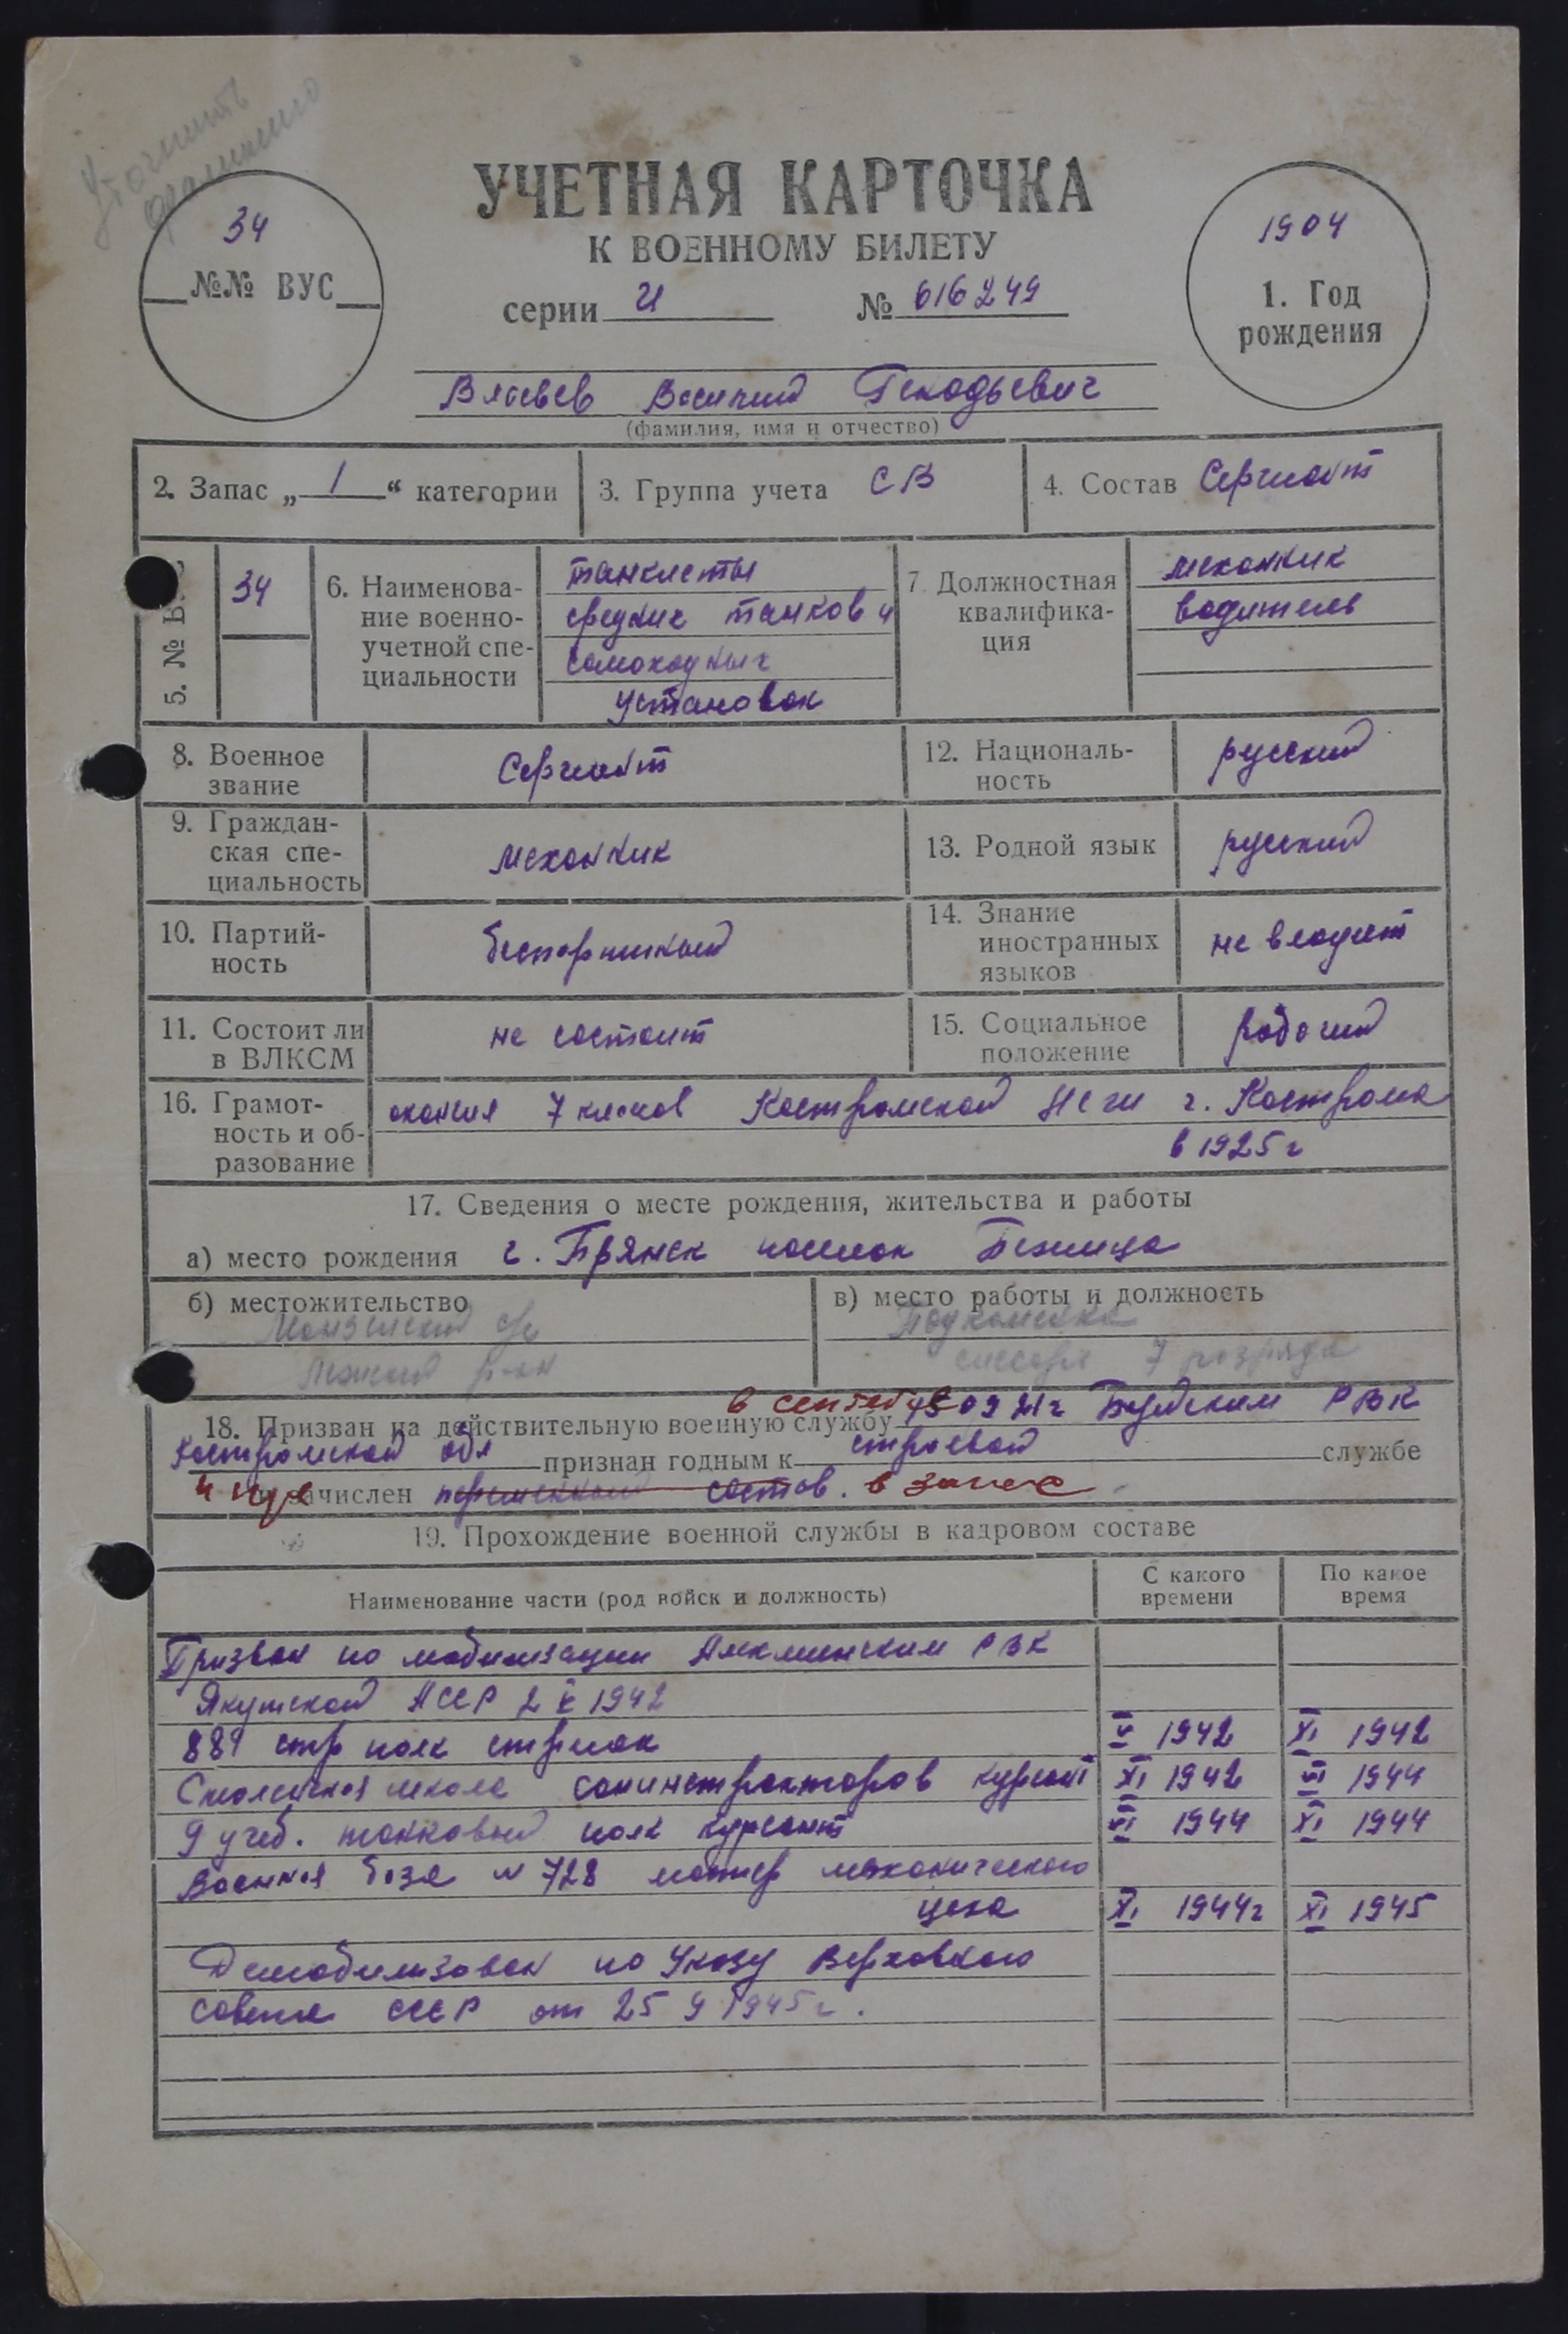 Уточнить
УЧЕТНАЯ КАРТОЧКА
К ВОЕННОМУ БИЛЕТУ
серии И № 616249
34
№№ ВУС
1904
1. Год
рождения
Василий
(фамилия, имя и отчество)
2. Запас „ 1 “ категории
3. Группа учета СВ
4. Состав Сержант
5. №
34
6. Наименова-
ние военно-
учетной спе-
циальности
танкисты
средних танков и
самоходных
установок
7. Должностная
квалифика-
ция
механик
водитель
8. Военное
звание
Сержант
12. Националь-
ность
русский
9. Граждан-
ская спе-
циальность
механик
13. Родной язык
русский
10. Партий-
ность
беспартийный
14. Знание
иностранных
языков
не владеет
11. Состоит ли
в ВЛКСМ
не состоит
15. Социальное
положение
рабочий
16. Грамот-
ность и об-
разование
окончил 7 классов Костромской г. Кострома
в 1925 г
17. Сведения о месте рождения, жительства и работы
а) место рождения г. Брянск поселок Бежица
б) местожительство
р-он
в) место работы и должность
слесарь 7 разряда
18. Призван на действительную военную службу РВК
Костромской обл признан годным к строевой службе
и зачислен состав. в запас
19. Прохождение военной службы в кадровом составе
Наименование части (род войск и должность)
С какого
времени
По какое
время
Призван по мобилизации РВК
Якутской АССР 2 V 1942
889 стр полк стрелок V 1942 XI 1942
школа санинструкторов курсант XI 1942 VI 1944
9 учеб. танковый полк курсант VI 1944 XI 1944
Военная база № 728 мастер механического
цеха XI 1944г XI 1945
Демобилизован по Указу Верховного
совета СССР от 25 9 1945 г.